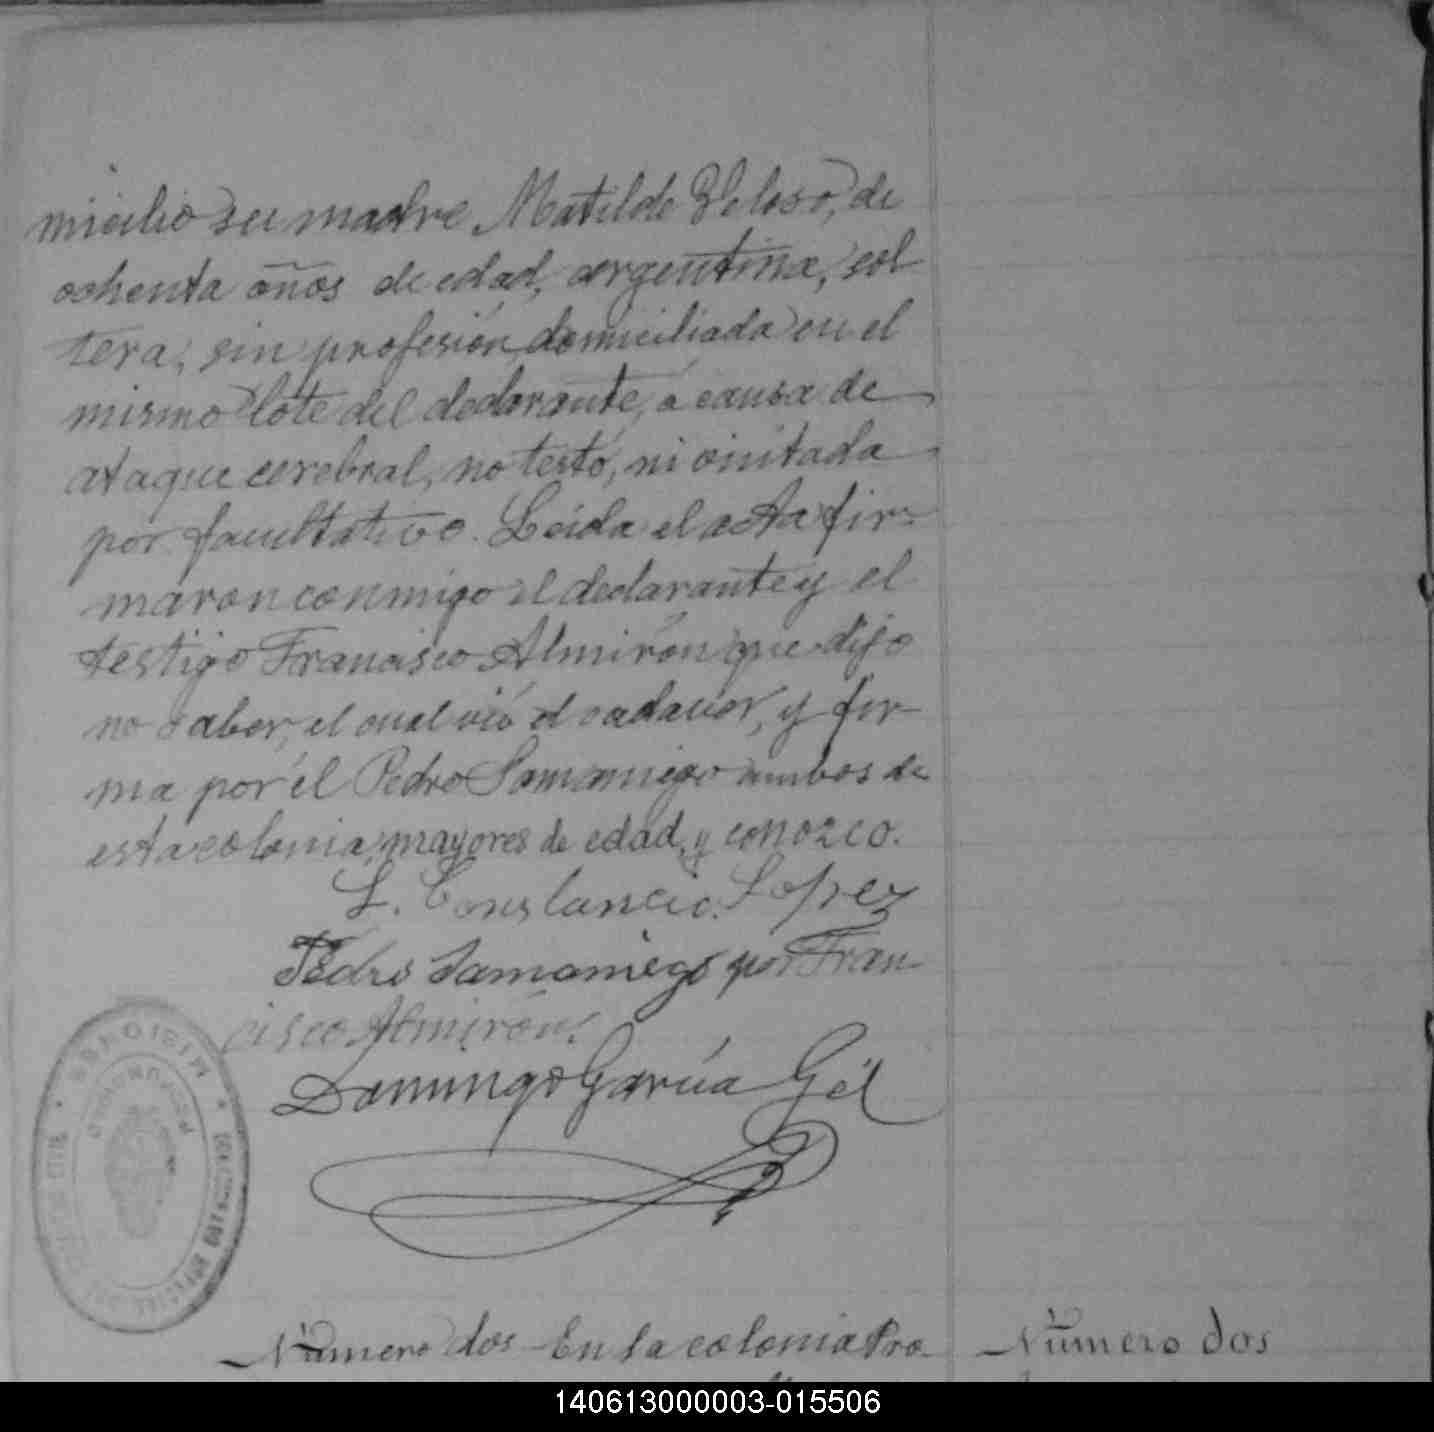 micilio su madre Matilde Veloso, de
ochenta años de edad, argentina, sol
tera, sin profesión, domiciliada en el
mismo lote del declarante, a causa de
ataque cerebral, no testó, ni
por facultativo. Leída el acta fir-
maron conmigo el declarante y el
testigo Francisco Almirón que dijo
no saber, el cual vió el cadaver, y fir-
ma por él Pedro Samaniego ambos de
esta colonia, mayores de edad, y conozco.
L. Constancio Lopez
Pedro Samaniego por Fran-
cisco Almirón.
Domingo García Gil
MISIONES
Número dos En la colonia Pro-
Número dos
140613000003-015506